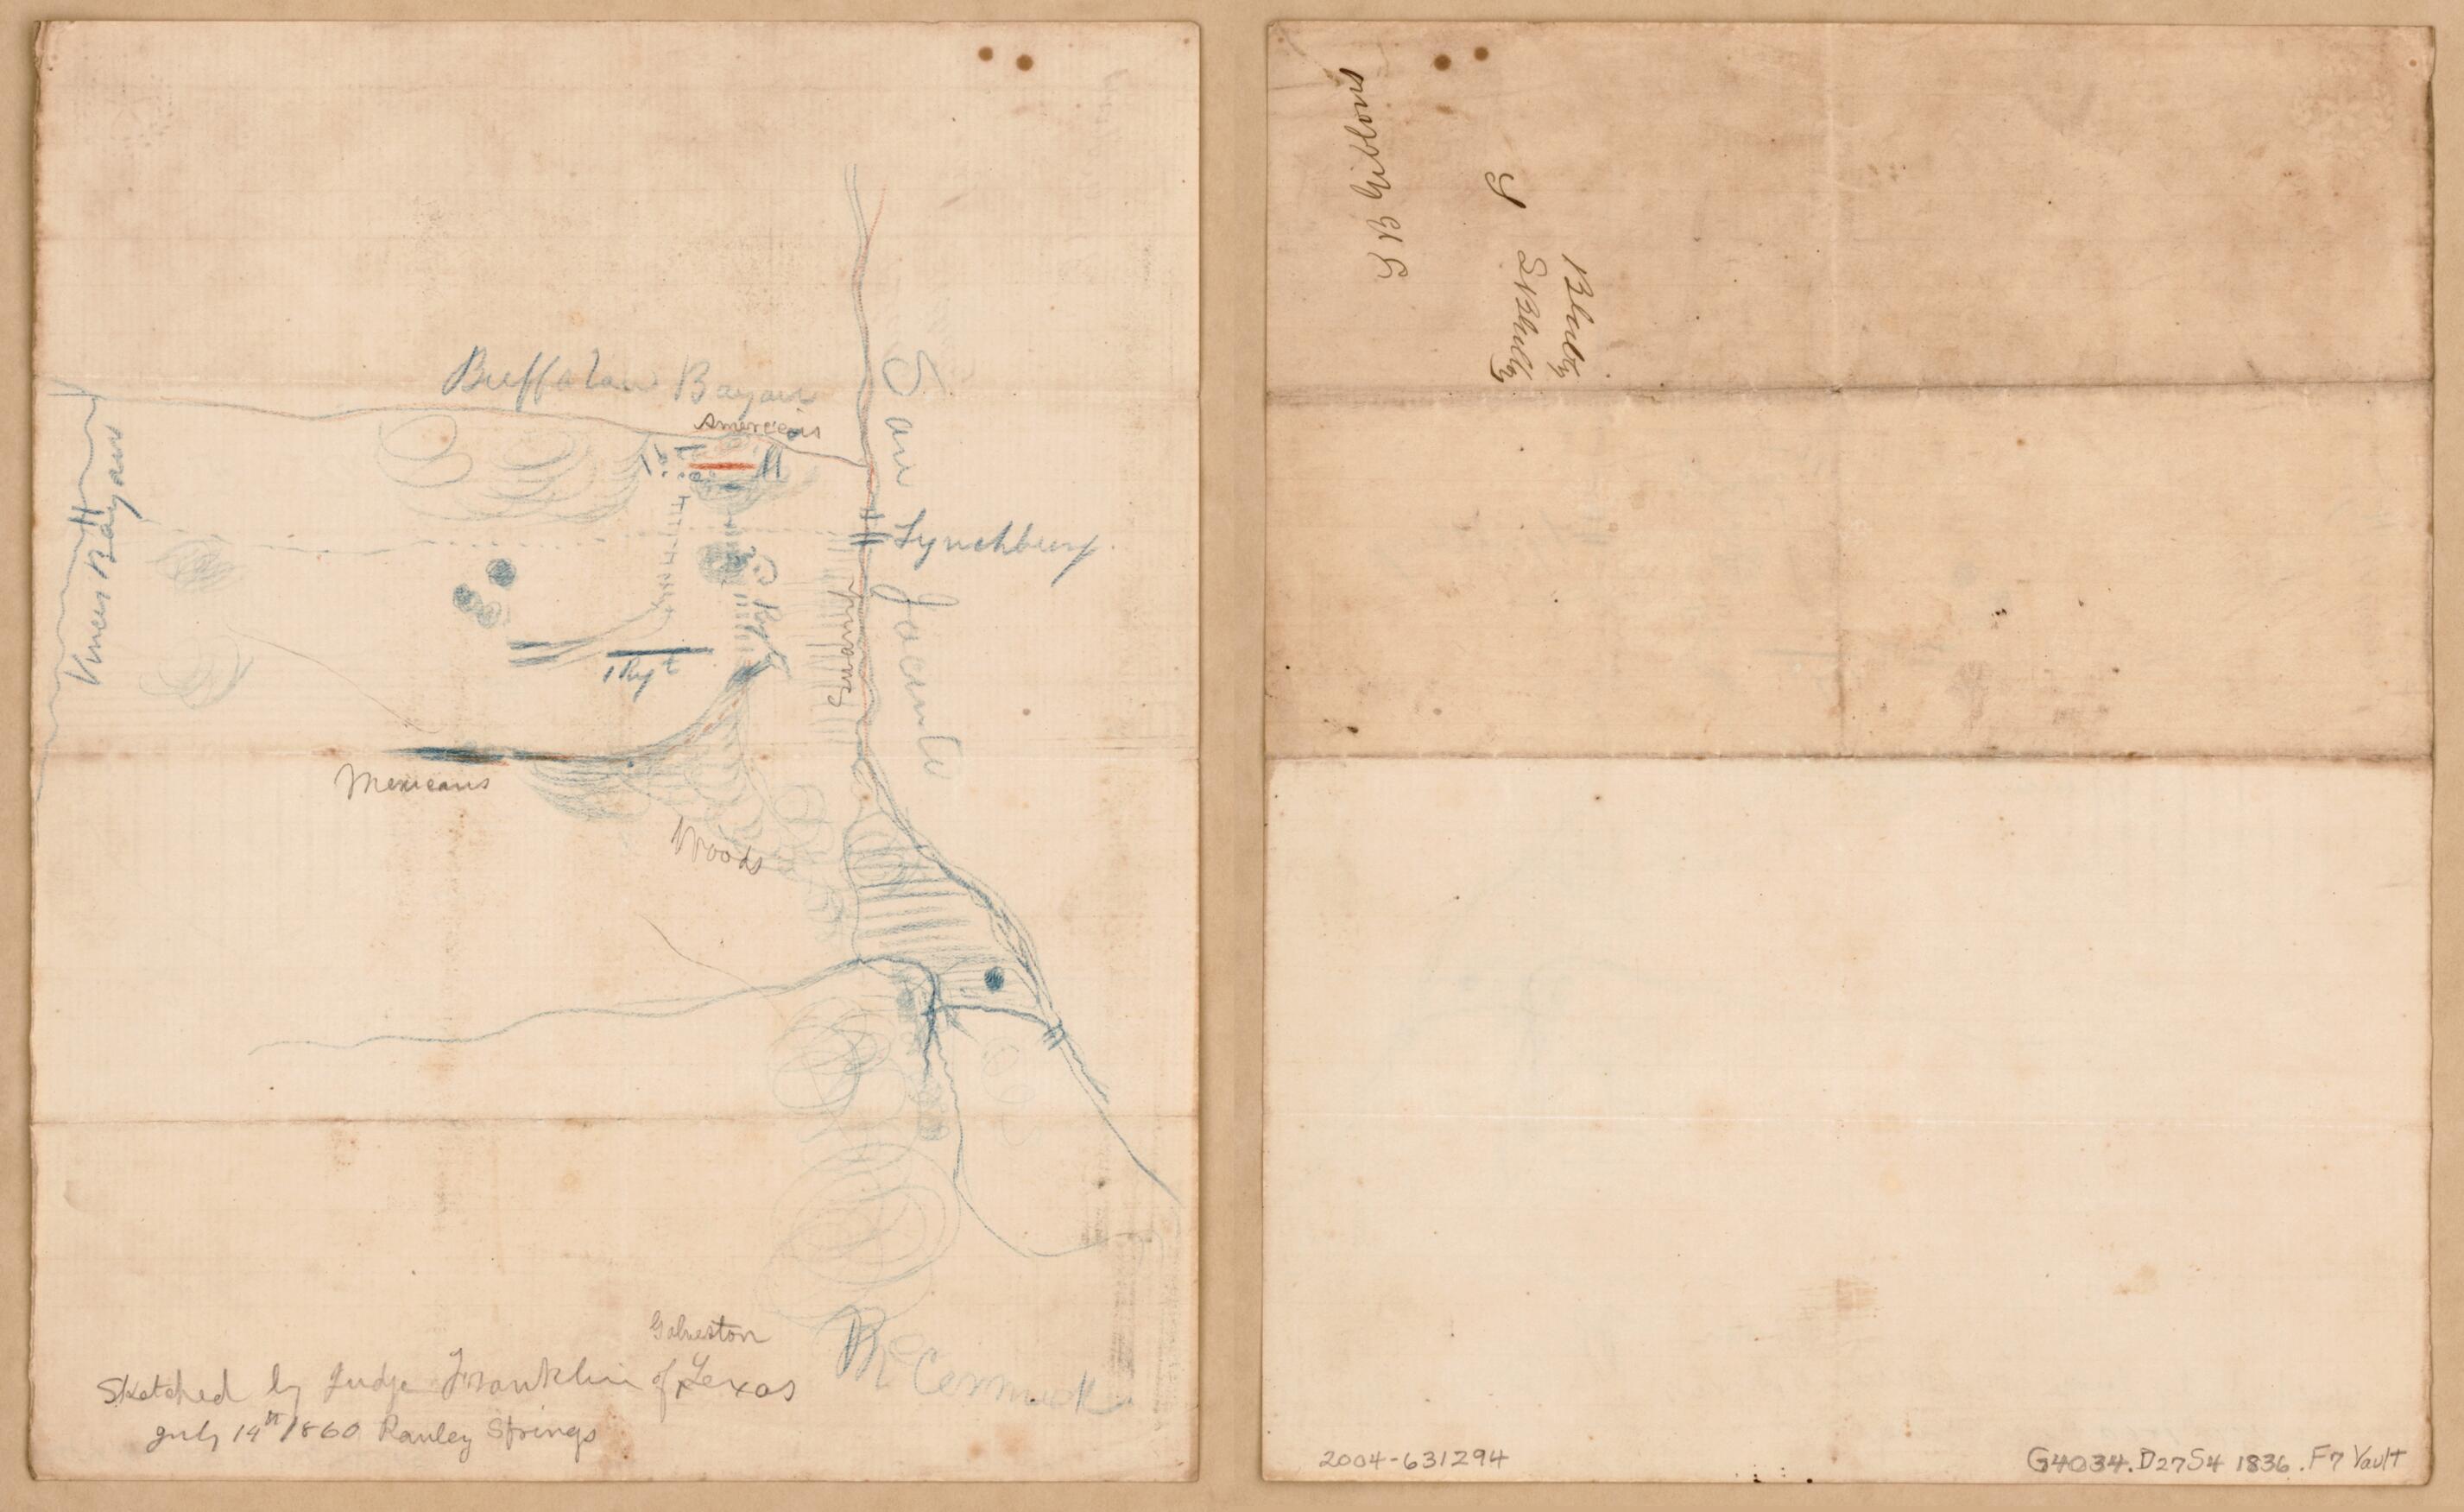 Buffalow Bayou
Americans
San Jacinto
Vinces Bayou
Lynchburg
Swamp
1 Rgt
Mexicans
Woods
Mc Cormick
Galveston
Sketched by Judge Franklin of Texas
July 14th 1860 Rawley Springs
J B Gibbons
2004-631294
G4034.D27S4 1836 .F7 Vault